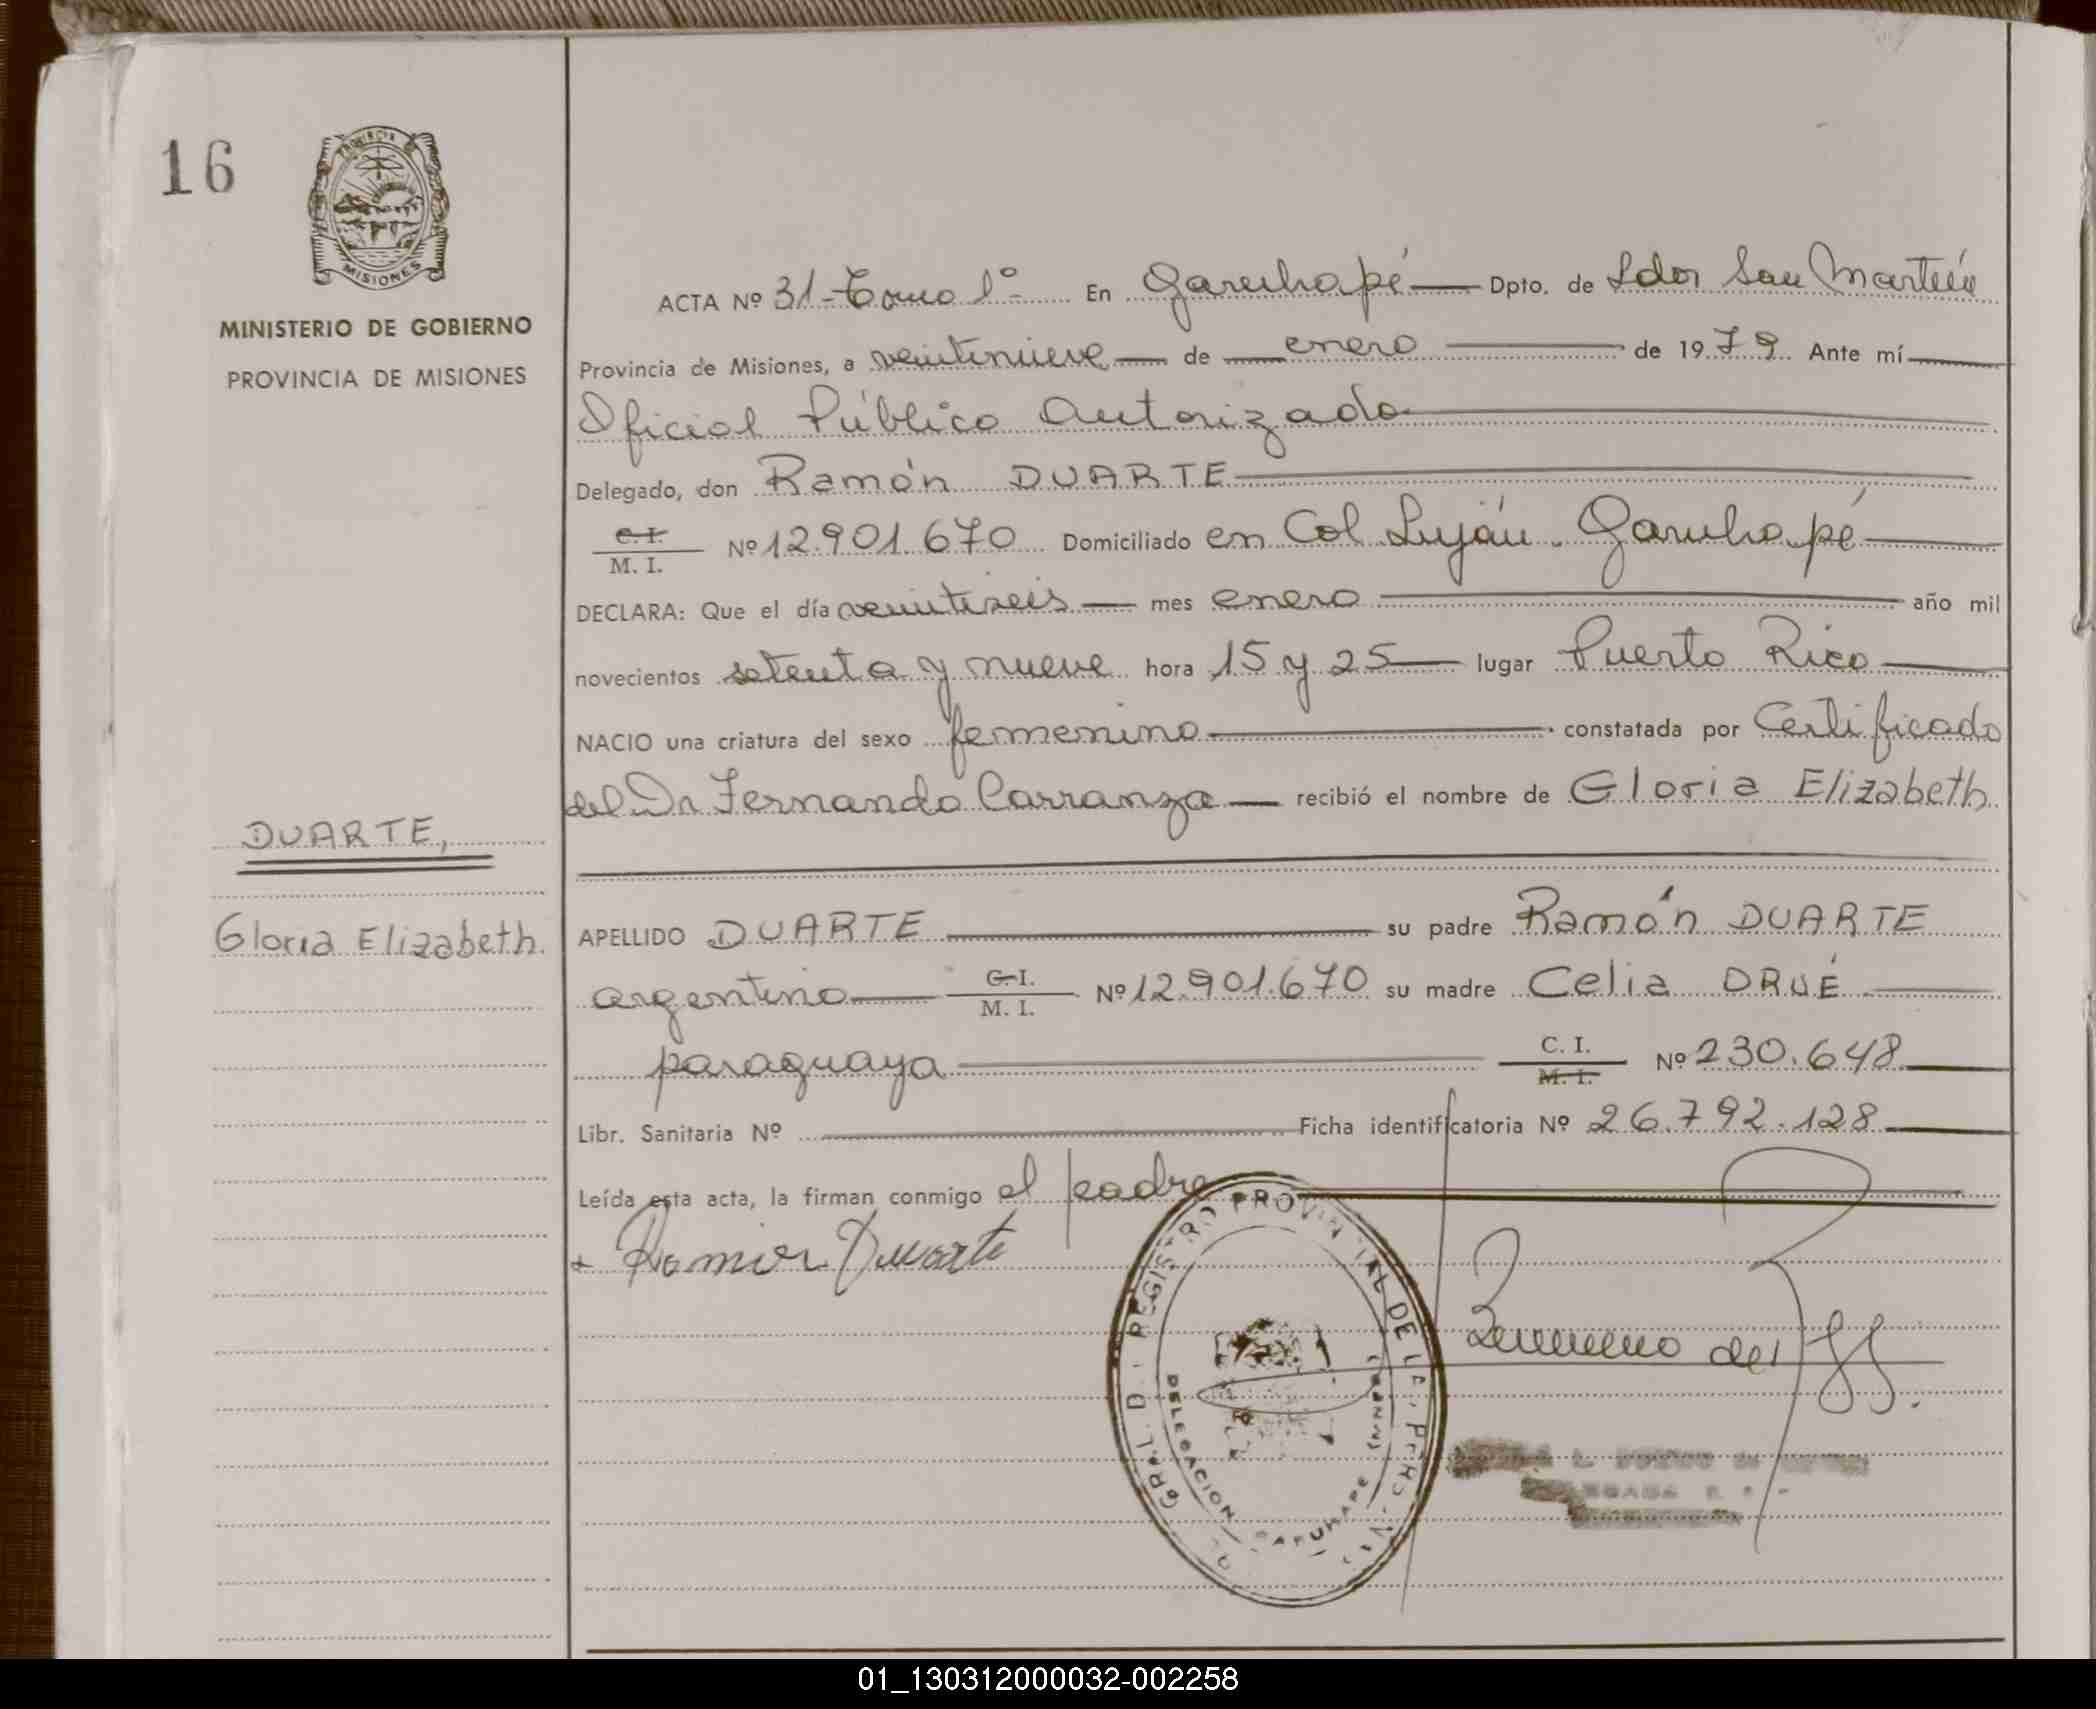 16
PROVINCIA
MISIONES
MINISTERIO DE GOBIERNO
PROVINCIA DE MISIONES
DUARTE,
Gloria Elizabeth.
ACTA Nº 31-Tomo 1º- En Garuhapé Dpto. de Ldor San Martín
Provincia de Misiones, a veintinueve de enero de 1979 Ante mí
Oficial Público Autorizado
Delegado, don Ramón DUARTE
C.I.
M. I. Nº 12.901.670 Domiciliado en Col Luján. Garuhapé
DECLARA: Que el día veintiseis mes enero año mil
novecientos setenta y nueve hora 15 y 25 lugar Puerto Rico
NACIO una criatura del sexo femenino constatada por Certificado
del Dr Fernando Carranza recibió el nombre de Gloria Elizabeth
APELLIDO DUARTE su padre Ramón DUARTE
argentino C.I.
M. I. Nº 12.901.670 su madre Celia DRUÉ
paraguaya C. I.
M. I. Nº 230.648
Libr. Sanitaria Nº Ficha identificatoria Nº 26.792.128
Leída esta acta, la firman conmigo el padre
Ramon Duarte
REGISTRO PROVINCIAL DE LAS PERSONAS
DELEGACION GARUHAPE (MNES)
01_130312000032-002258